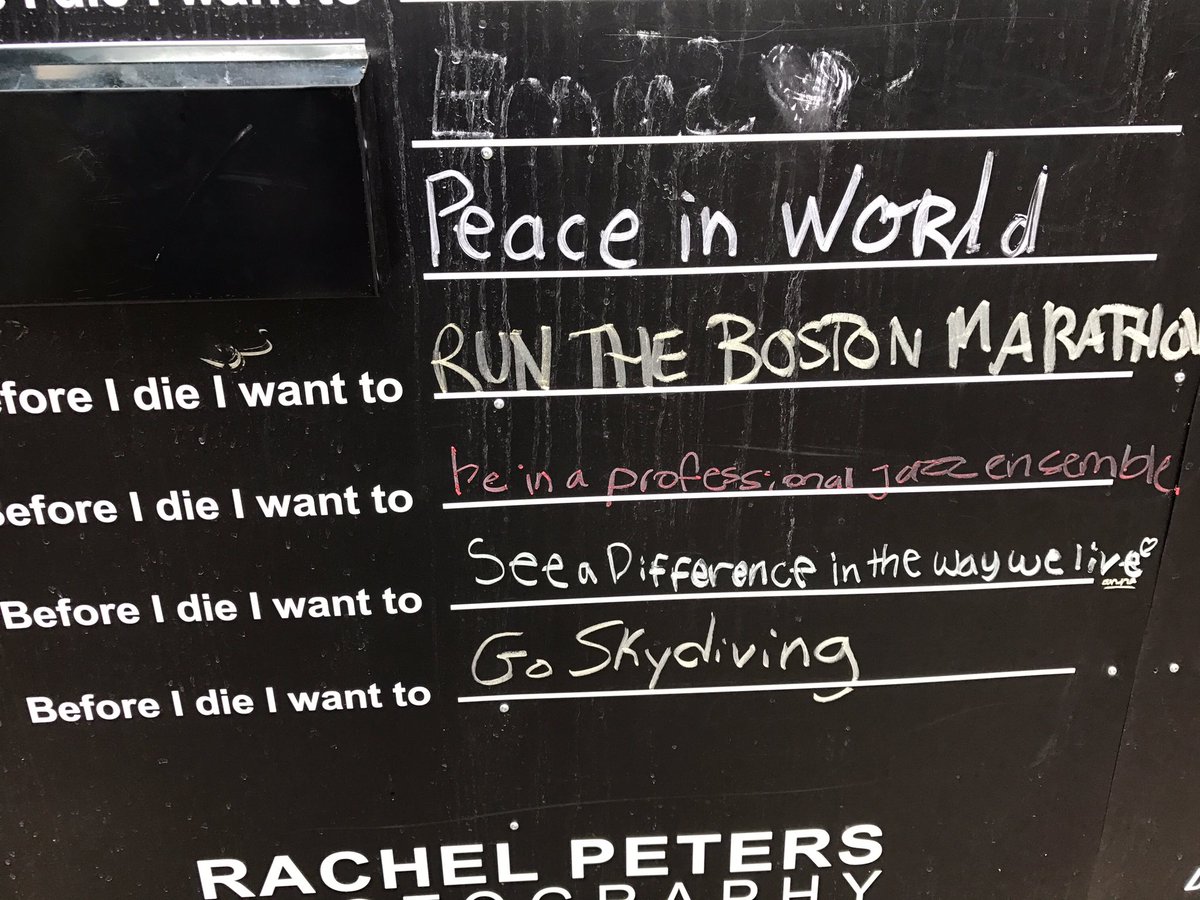 I die I want to
Peace in WORld
fore I die I want to RUN THE BOSTON MARATHON
Before I die I want to be in a professional jazz ensemble
Before I die I want to See a Difference in the way we live
Before I die I want to Go Skydiving
RACHEL PETERS
OGRAPHY